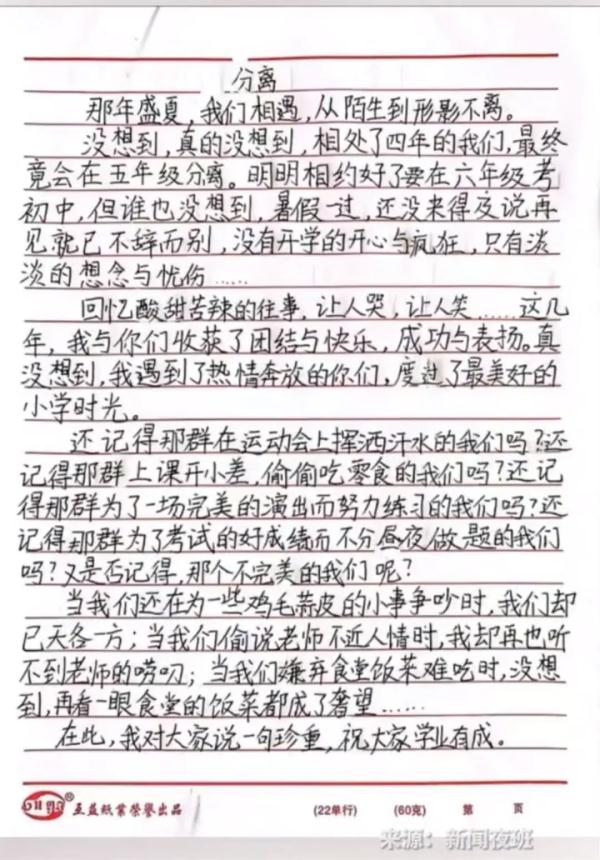 分离
那年盛夏，我们相遇，从陌生到形影不离。
没想到，真的没想到，相处了四年的我们，最终
竟会在五年级分离。明明相约好了要在六年级考
初中，但谁也没想到，暑假一过，还没来得及说再
见就已不辞而别，没有开学的开心与疯狂，只有淡
淡的想念与忧伤……
回忆酸甜苦辣的往事，让人哭，让人笑……这几
年，我与你们收获了团结与快乐，成功与表扬。真
没想到，我遇到了热情奔放的你们，度过了最美好的
小学时光。
还记得那群在运动会上挥洒汗水的我们吗？还
记得那群上课开小差，偷偷吃零食的我们吗？还记
得那群为了一场完美的演出而努力练习的我们吗？还
记得那群为了考试的好成绩而不分昼夜做题的我们
吗？又是否记得，那个不完美的我们呢？
当我们还在为一些鸡毛蒜皮的小事争吵时，我们却
已天各一方；当我们偷说老师不近人情时，我却再也听
不到老师的唠叨；当我们嫌弃食堂饭菜难吃时，没想
到，再看一眼食堂的饭菜都成了奢望……
在此，我对大家说一句珍重，祝大家学业有成。
纸业荣誉出品 (22单行) (60克) 第 页
来源：新闻夜班